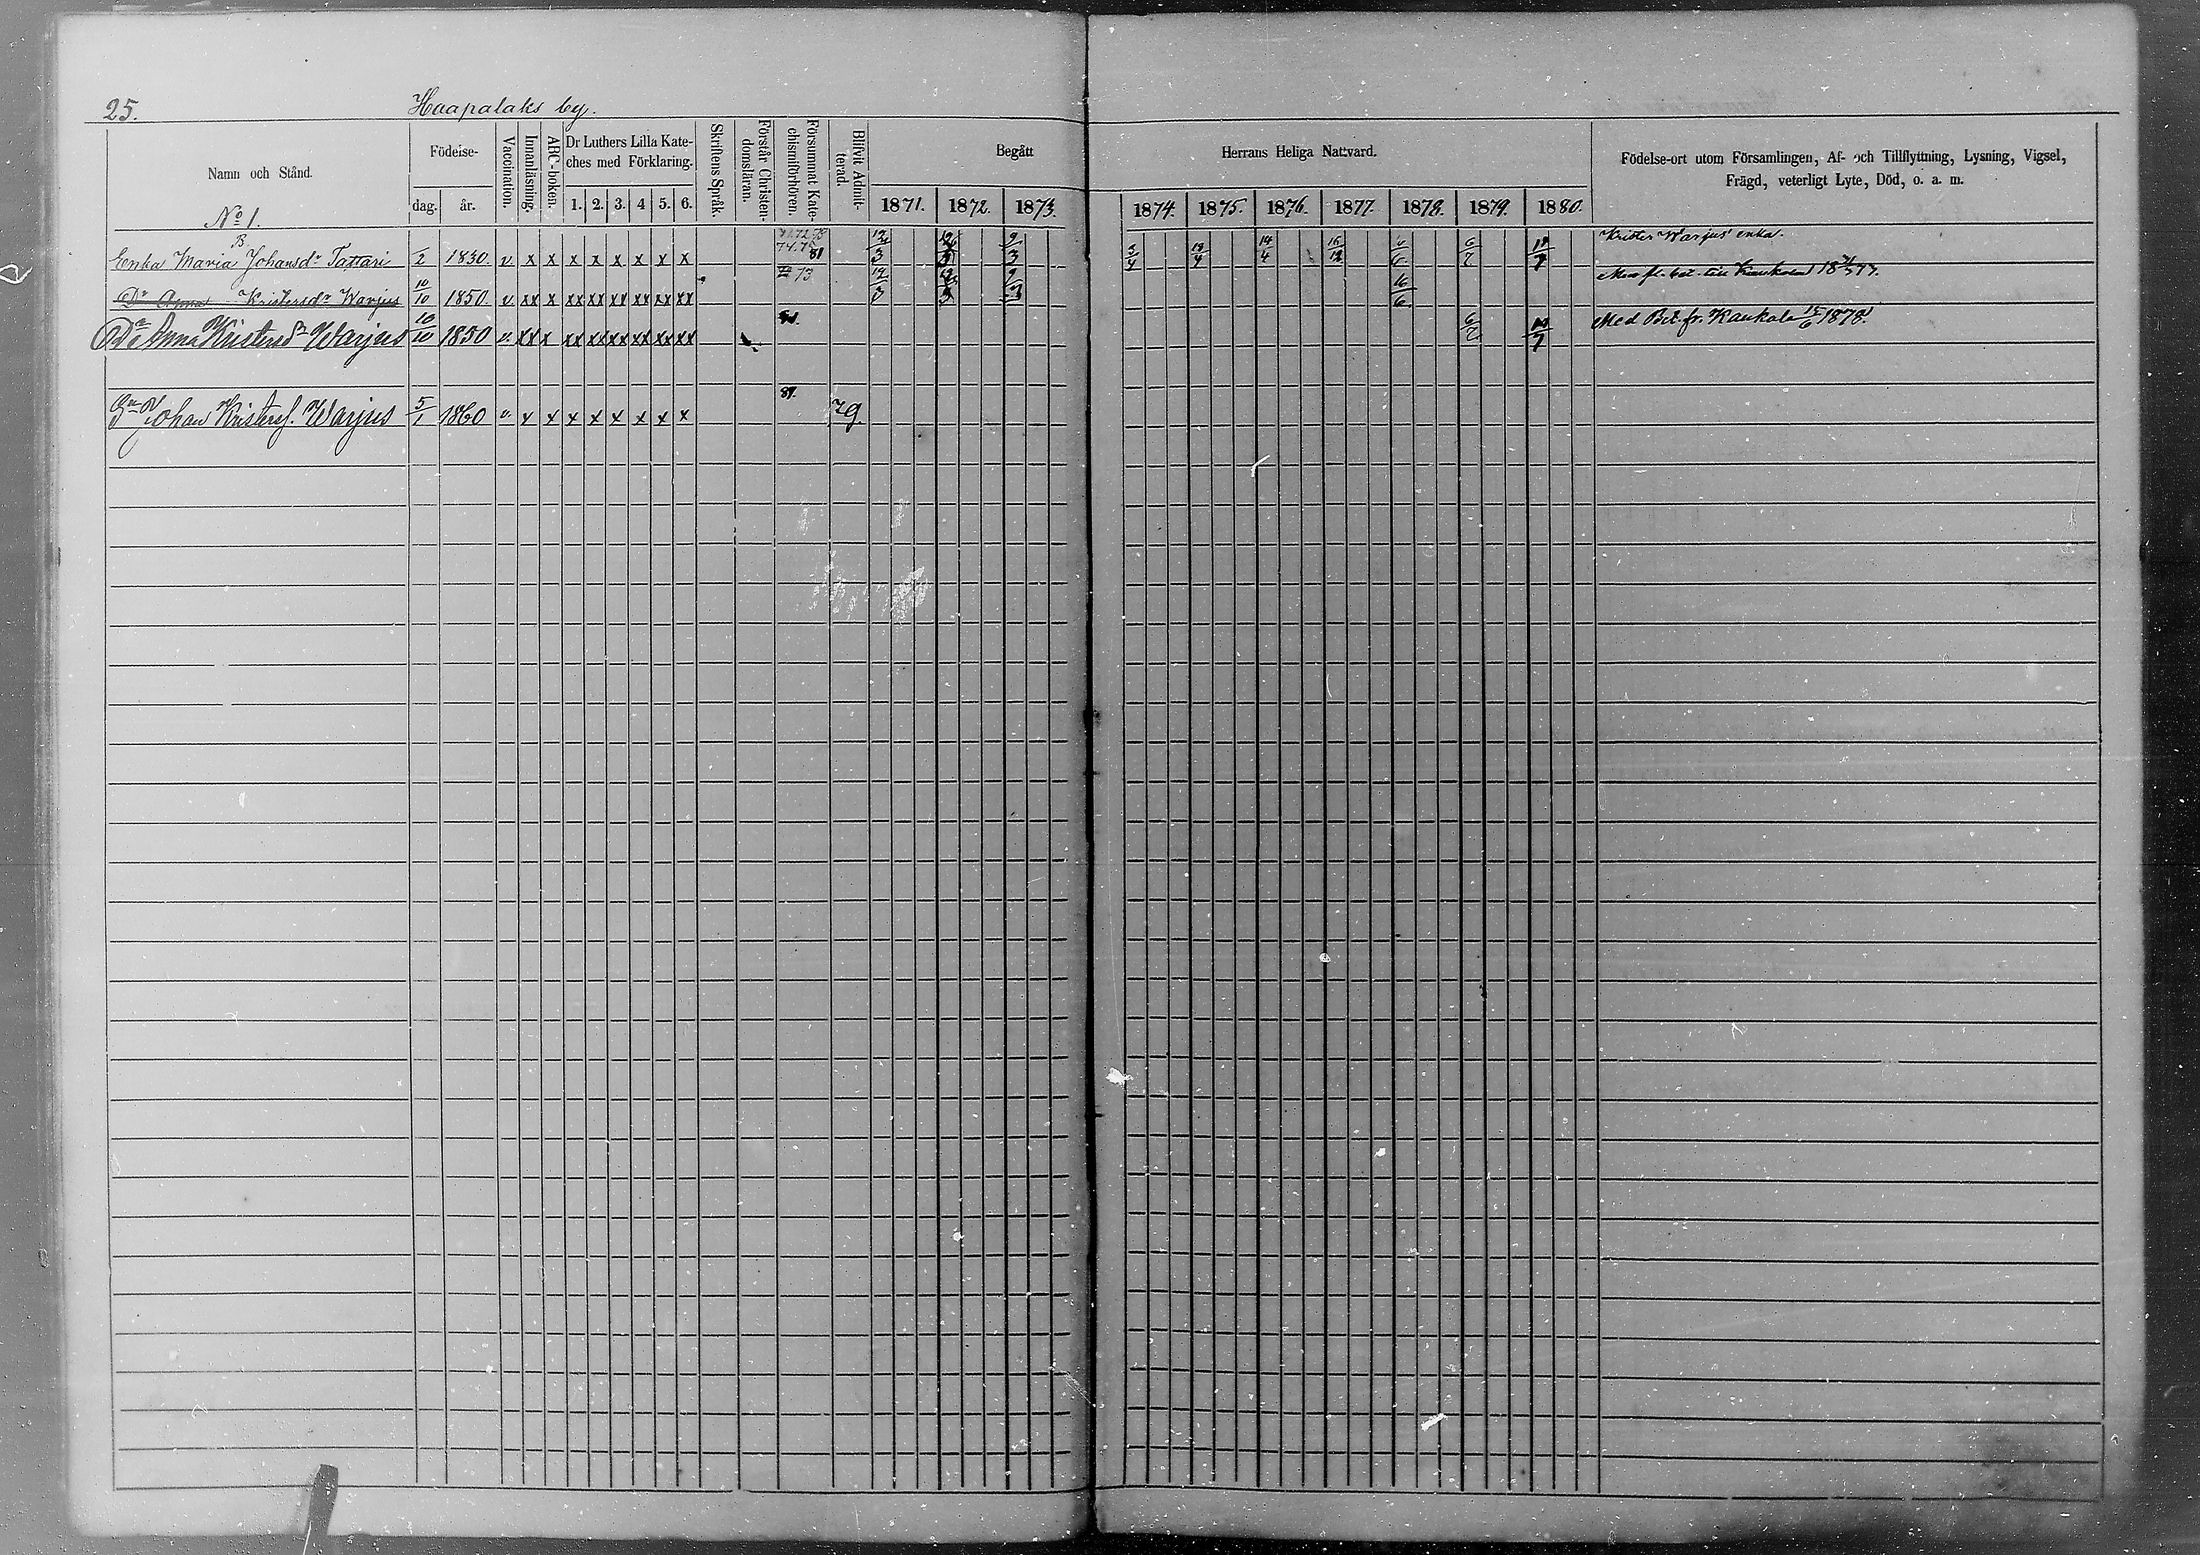 25. Haapalaks by.
Namn och Stånd.
Födelse-
dag. år.
Vaccination.
Innanläsning.
ABC-boken.
Dr Luthers Lilla Kate-
ches med Förklaring.
1. 2. 3. 4 5. 6.
Skriftens Språk.
Förstår Christen-
domsläran.
Försummat Kate-
chismiförhören.
Blifvit Admit-
terad.
Begått Herrans Heliga Nattvard.
1871. 1872. 1873. 1874. 1875. 1876. 1877. 1878. 1879. 1880.
Födelse-ort utom Församlingen, Af- och Tillflyttning, Lysning, Vigsel,
Frägd, veterligt Lyte, Död, o. a. m.
No 1.
B.
Enka Maria Johansdr Tattari 1/2 1830 v x x x x x x x x 74.75 81 12/3 12/3 9/3 5/4 18/4 14/4 6/7 Krister Warjus' enka.
Dr Anna Kristersdr Warjus 10/10 1850 v xx x xx xx xx xx xx xx 73 12/3 16/6
Dr Anna Kristersdr Warjus 10/10 1850 v. xx x xx xx xx xx xx xx 6/7 Med Bet. fr. Kaukola 15/6 1878.
Sn Johan Kristerss. Warjus 5/1 1860 v. x x x x x x x x 81. 79.